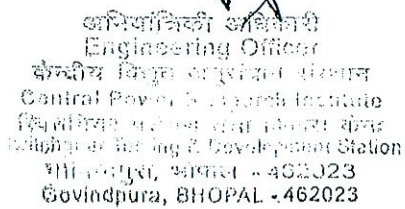 अभियांत्रिकी अधिकारी
Engineering Officer
केन्द्रीय विद्युत अनुसंधान संस्थान
Central Power Research Institute
स्विचगियर परीक्षण तथा विकास केन्द्र
Switchgear Testing & Development Station
गोविन्दपुरा, भोपाल - 462023
Govindpura, BHOPAL - 462023